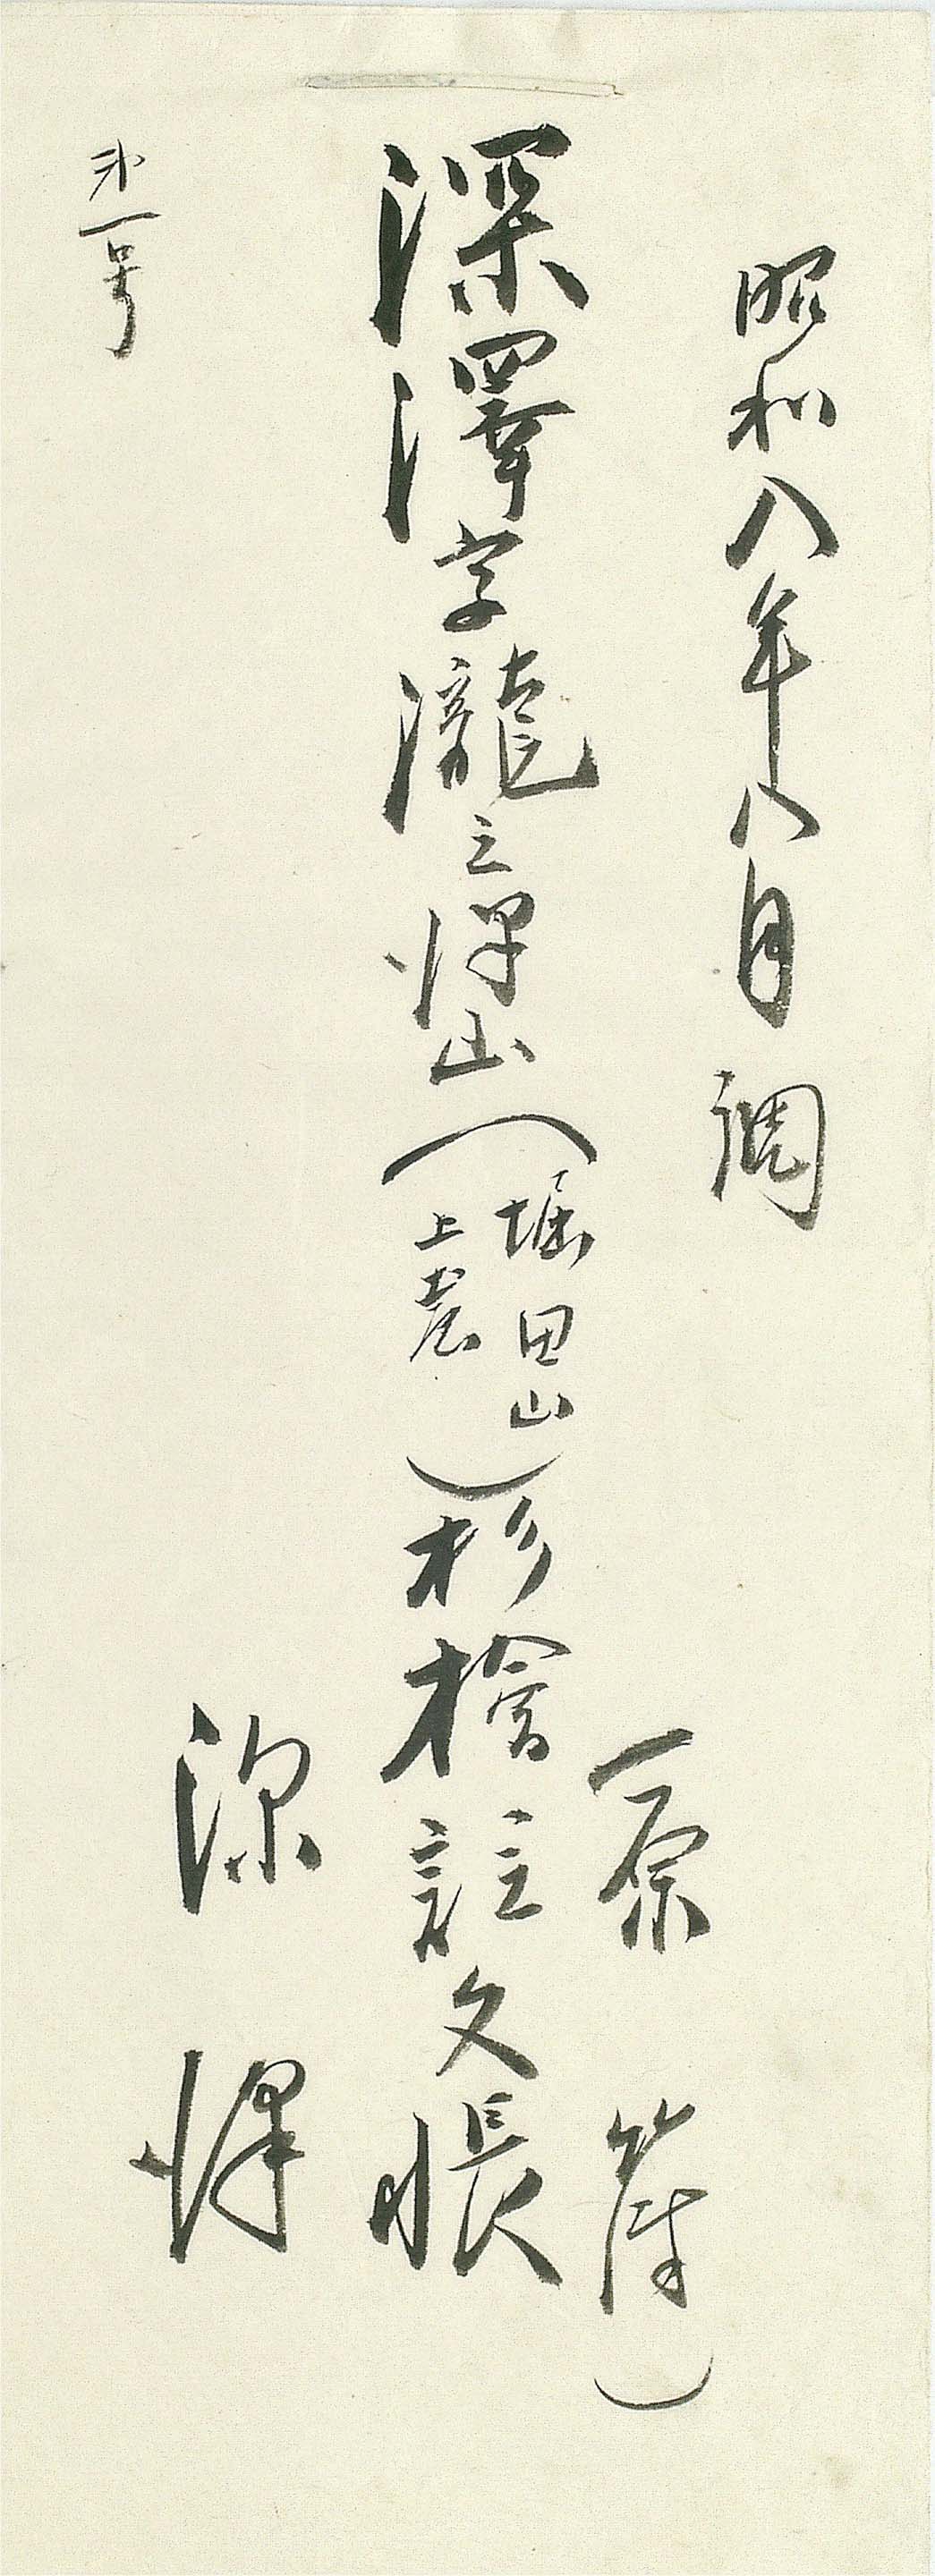 昭和八年八月調
（原簿）
深澤字瀧之澤山（堀田山
上）杉檜註文帳
深澤
第一号